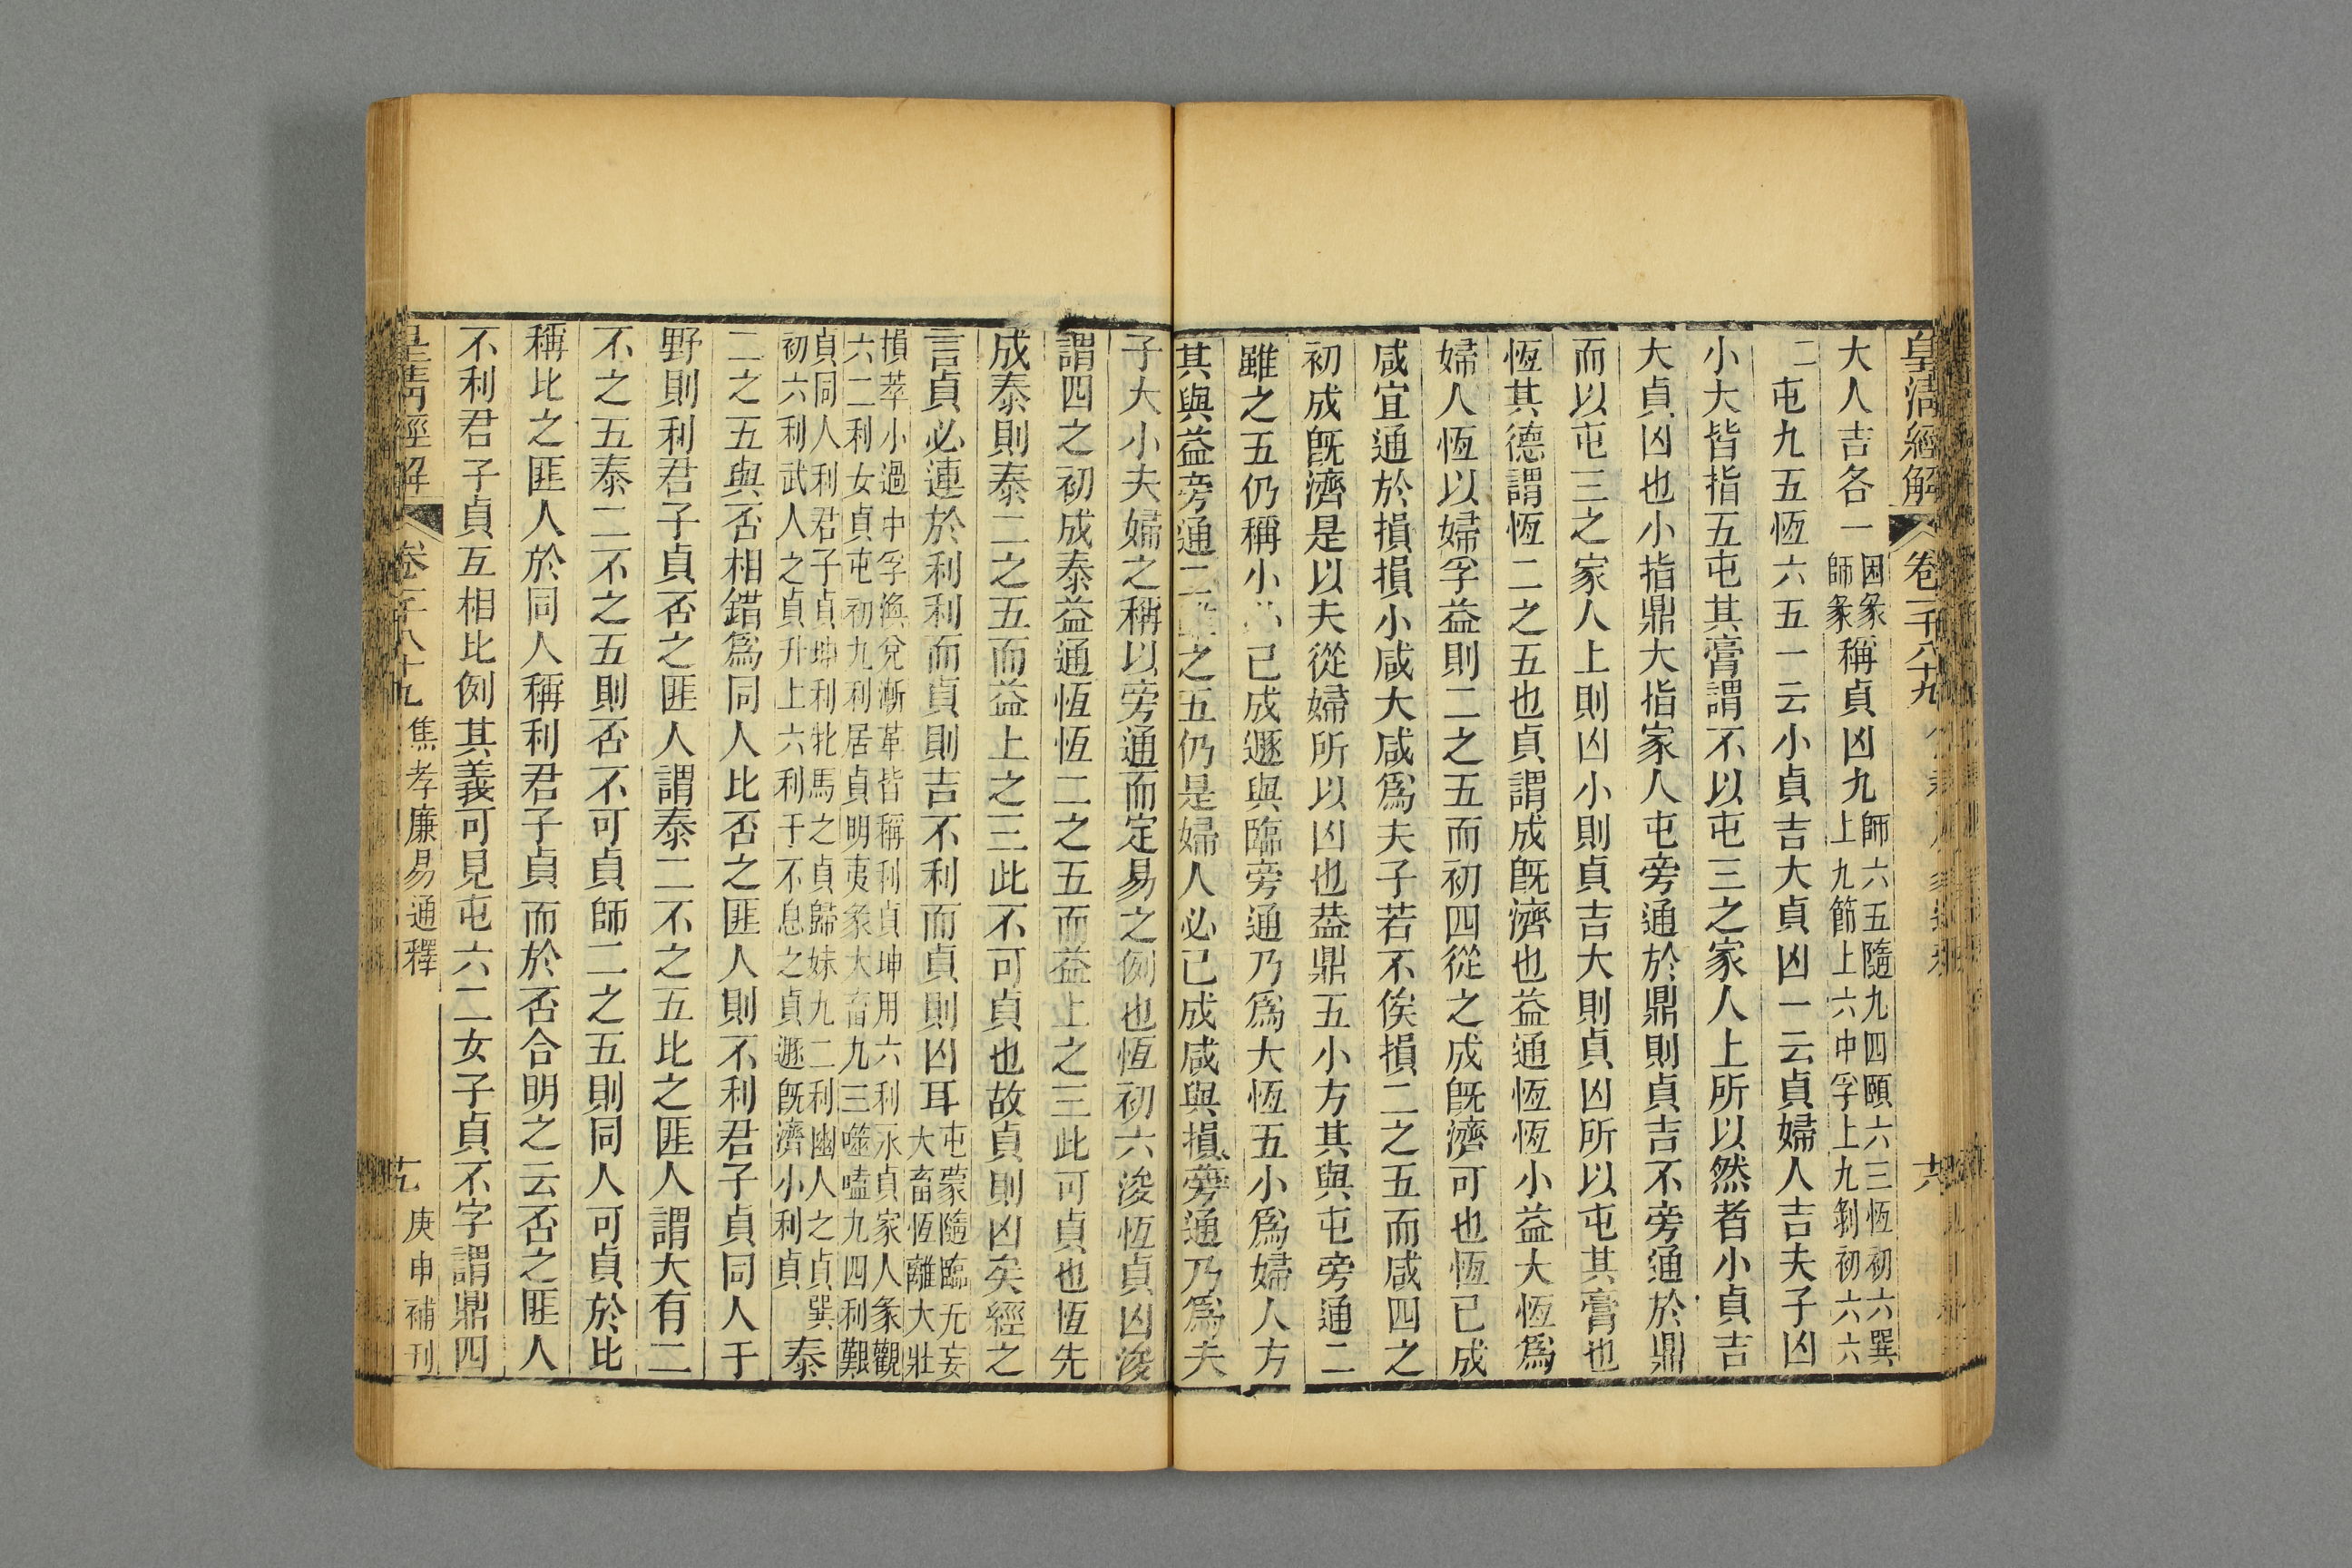 皇清經解 卷一千八十九 六
大人吉各一困彖師彖稱貞凶九師六五隨九四頤六三恆初六巽上九節上六中孚上九剝初六六
二屯九五恆六五一云小貞吉大貞凶一云貞婦人吉夫子凶
小大皆指五屯其膏謂不以屯三之家人上所以然者小貞吉
大貞凶也小指鼎大指家人屯旁通於鼎則貞吉不旁通於鼎
而以屯三之家人上則凶小則貞吉大則貞凶所以屯其膏也
恆其德謂恆二之五也貞謂成既濟也益通恆恆小益大恆爲
婦人恆以婦孚益則二之五而初四從之成既濟可也恆已成
咸宜通於損損小咸大咸爲夫子若不俟損二之五而咸四之
初成既濟是以夫從婦所以凶也葢鼎五小方其與屯旁通二
雖之五仍稱小已成遯與臨旁通乃爲大恆五小爲婦人方
其與益旁通二雖之五仍是婦人必已成咸與損旁通乃爲夫
子大小夫婦之稱以旁通而定易之例也恆初六浚恆貞凶浚
謂四之初成泰益通恆恆二之五而益上之三此可貞也恆先
成泰則泰二之五而益上之三此不可貞也故貞則凶矣經之
言貞必連於利利而貞則吉不利而貞則凶耳屯蒙隨臨无妄大畜恆離大壯
損萃小過中孚渙兌漸革皆稱利貞坤用六利永貞家人彖觀六二利女貞屯初九利居貞明夷彖大畜九三噬嗑九四利艱
貞同人利君子貞坤利牝馬之貞歸妹九二利幽人之貞巽初六利武人之貞升上六利于不息之貞遯既濟小利貞泰
二之五與否相錯爲同人比否之匪人則不利君子貞同人于
野則利君子貞否之匪人謂泰二不之五比之匪人謂大有二
不之五泰二不之五則否不可貞師二之五則同人可貞於比
稱比之匪人於同人稱利君子貞而於否合明之云否之匪人
不利君子貞互相比例其義可見屯六二女子貞不字謂鼎四
皇清經解 卷一千八十九 焦孝廉易通釋 庚申補刊